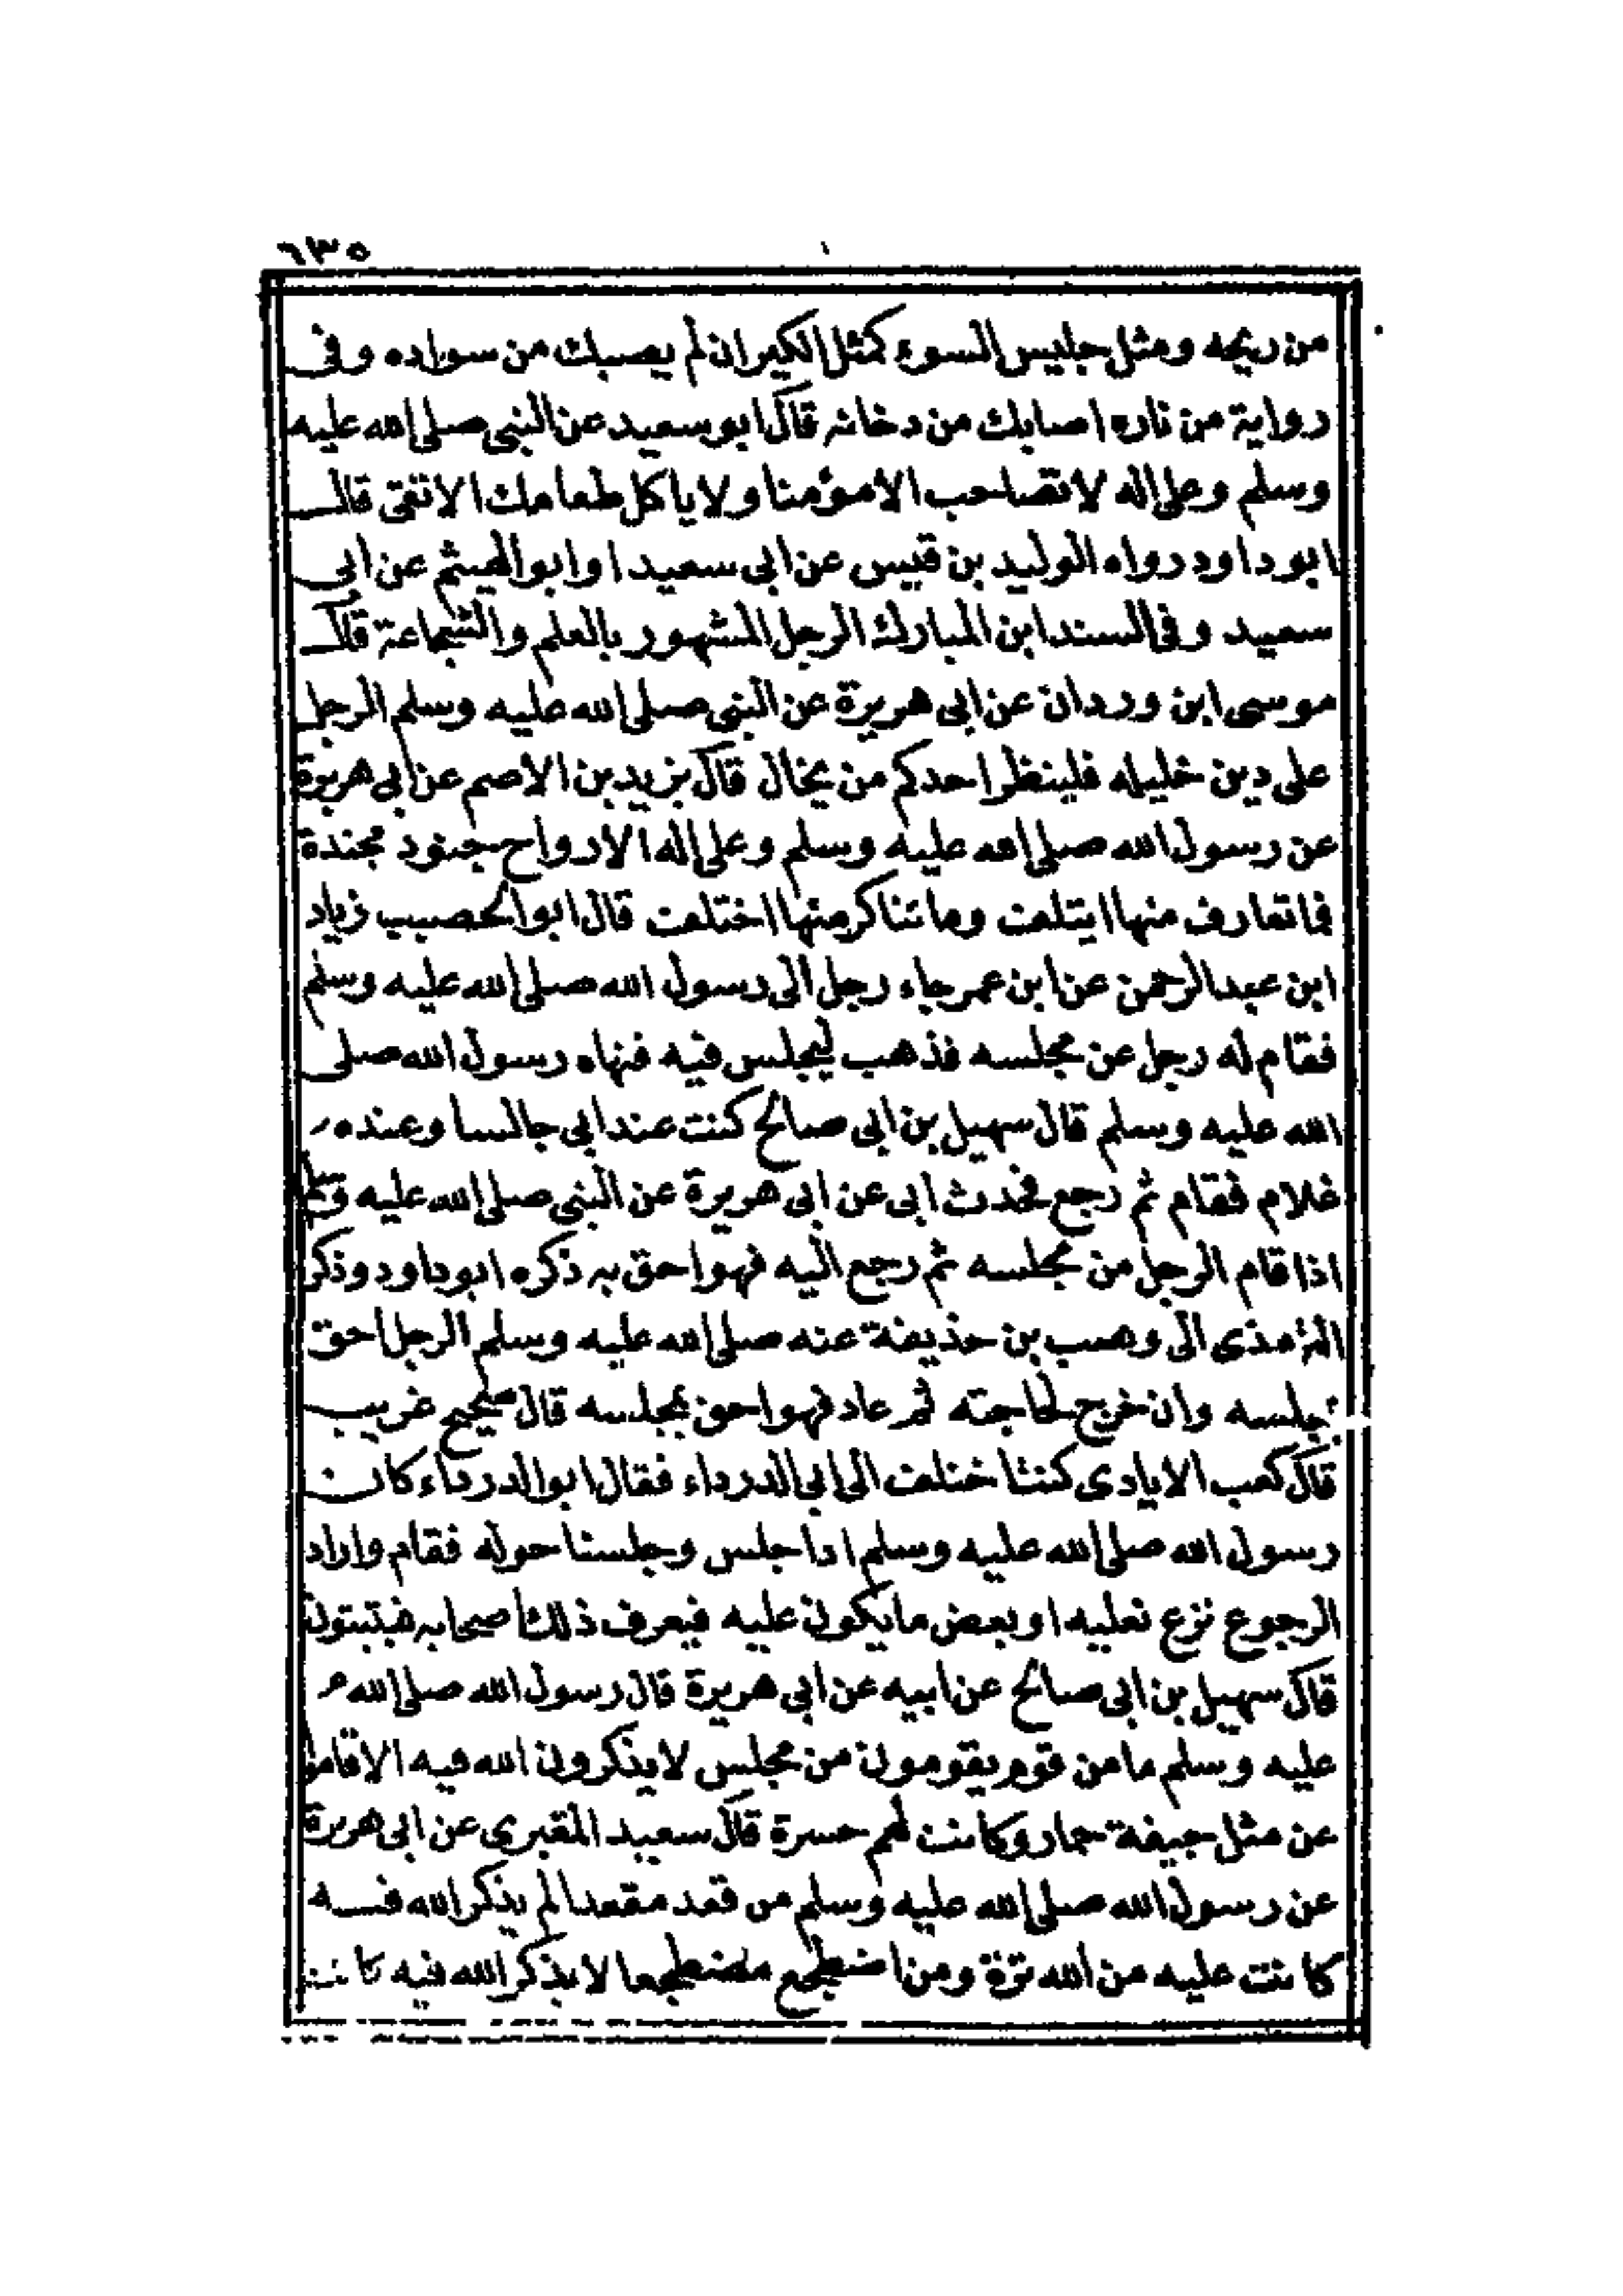 ٦٣٥
من ريحه ومثل جليس السوء كمثل الكيران لم يصبك من سواده وفى
رواية من ناره اصابك من دخانه قال ابو سعيد عن النبى صلى الله عليه
وسلم وعلى اله لا تصاحب الا مؤمنا ولا ياكل طعامك الا تقى قال
ابو داود رواه الوليد بن قيس عن ابى سعيد او ابو الهيثم عن ابى
سعيد وفى السند ابن المبارك الرجل المشهور بالعلم والشجاعة قال
موسى ابن وردان عن ابى هريرة عن النبى صلى الله عليه وسلم الرجل
على دين خليله فلينظر احدكم من يخال قال يزيد بن الاصم عن ابى هريرة
عن رسول الله صلى الله عليه وسلم وعلى اله الارواح جنود مجندة
فما تعارف منها ايتلف وما تناكر منها اختلف قال ابو الخصيب زياد
ابن عبد الرحمن عن ابن عمر جاء رجل الى رسول الله صلى الله عليه وسلم
فقام له رجل عن مجلسه فذهب ليجلس فيه فنهاه رسول الله صلى
الله عليه وسلم قال سهيل بن ابى صالح كنت عند ابى جالسا وعنده
غلام فقام ثم رجع فحدث ابى عن ابى هريرة عن النبى صلى الله عليه وسلم
اذا قام الرجل من مجلسه ثم رجع اليه فهو احق به ذكره ابو داود وذكر
الترمذى الى وهب بن حذيفة عنه صلى الله عليه وسلم الرجل احق
بمجلسه وان خرج لحاجته ثم عاد فهو احق بمجلسه قال صحيح غريب
قال كعب الايادى كنت اختلف الى ابى الدرداء فقال ابو الدرداء كان
رسول الله صلى الله عليه وسلم اذا جلس وجلسنا حوله فقام واراد
الرجوع نزع نعليه او بعض ما يكون عليه فيعرف ذلك اصحابه فيثبتون
قال سهيل بن ابى صالح عن ابيه عن ابى هريرة قال رسول الله صلى الله
عليه وسلم ما من قوم يقومون من مجلس لا يذكرون الله فيه الا قاموا
عن مثل جيفة حمار وكانت لهم حسرة قال سعيد المقبرى عن ابى هريرة
عن رسول الله صلى الله عليه وسلم من قعد مقعدا لم يذكر الله فيه
كانت عليه من الله ترة ومن اضطجع مضطجعا لا يذكر الله فيه كانت